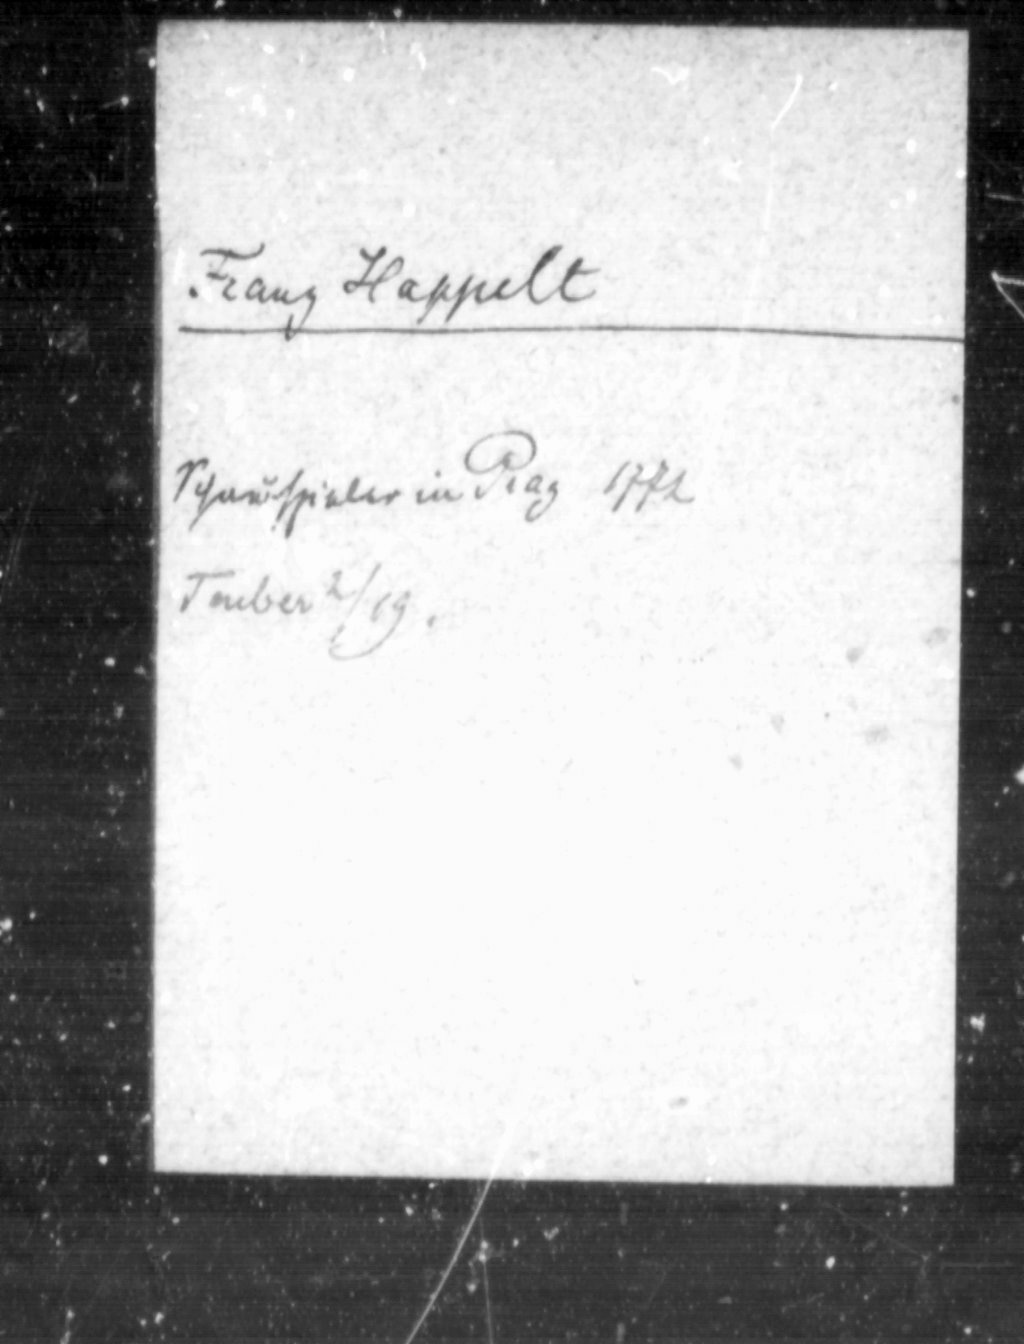 Franz Happelt
Schauspieler in Prag 1772
Teuber 2/19.